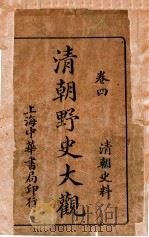 卷四
清朝史料
清朝野史大觀
上海中華書局印行